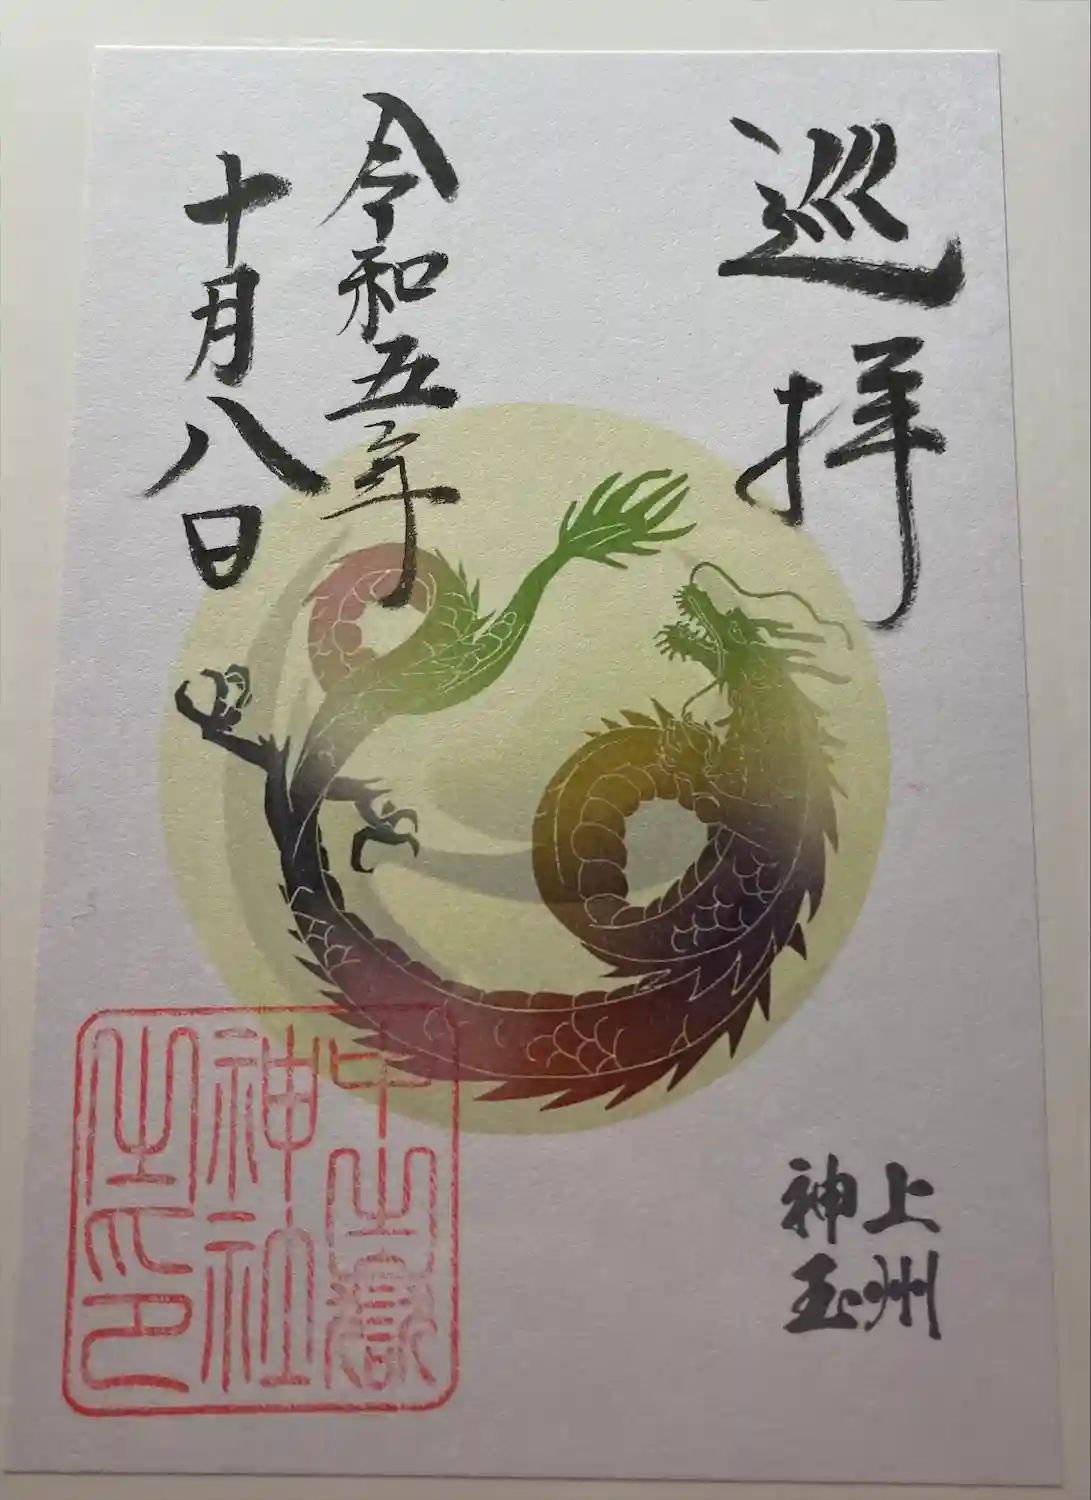 巡拝
令和五年
十月八日
上州
神玉
中之嶽
神社
之印